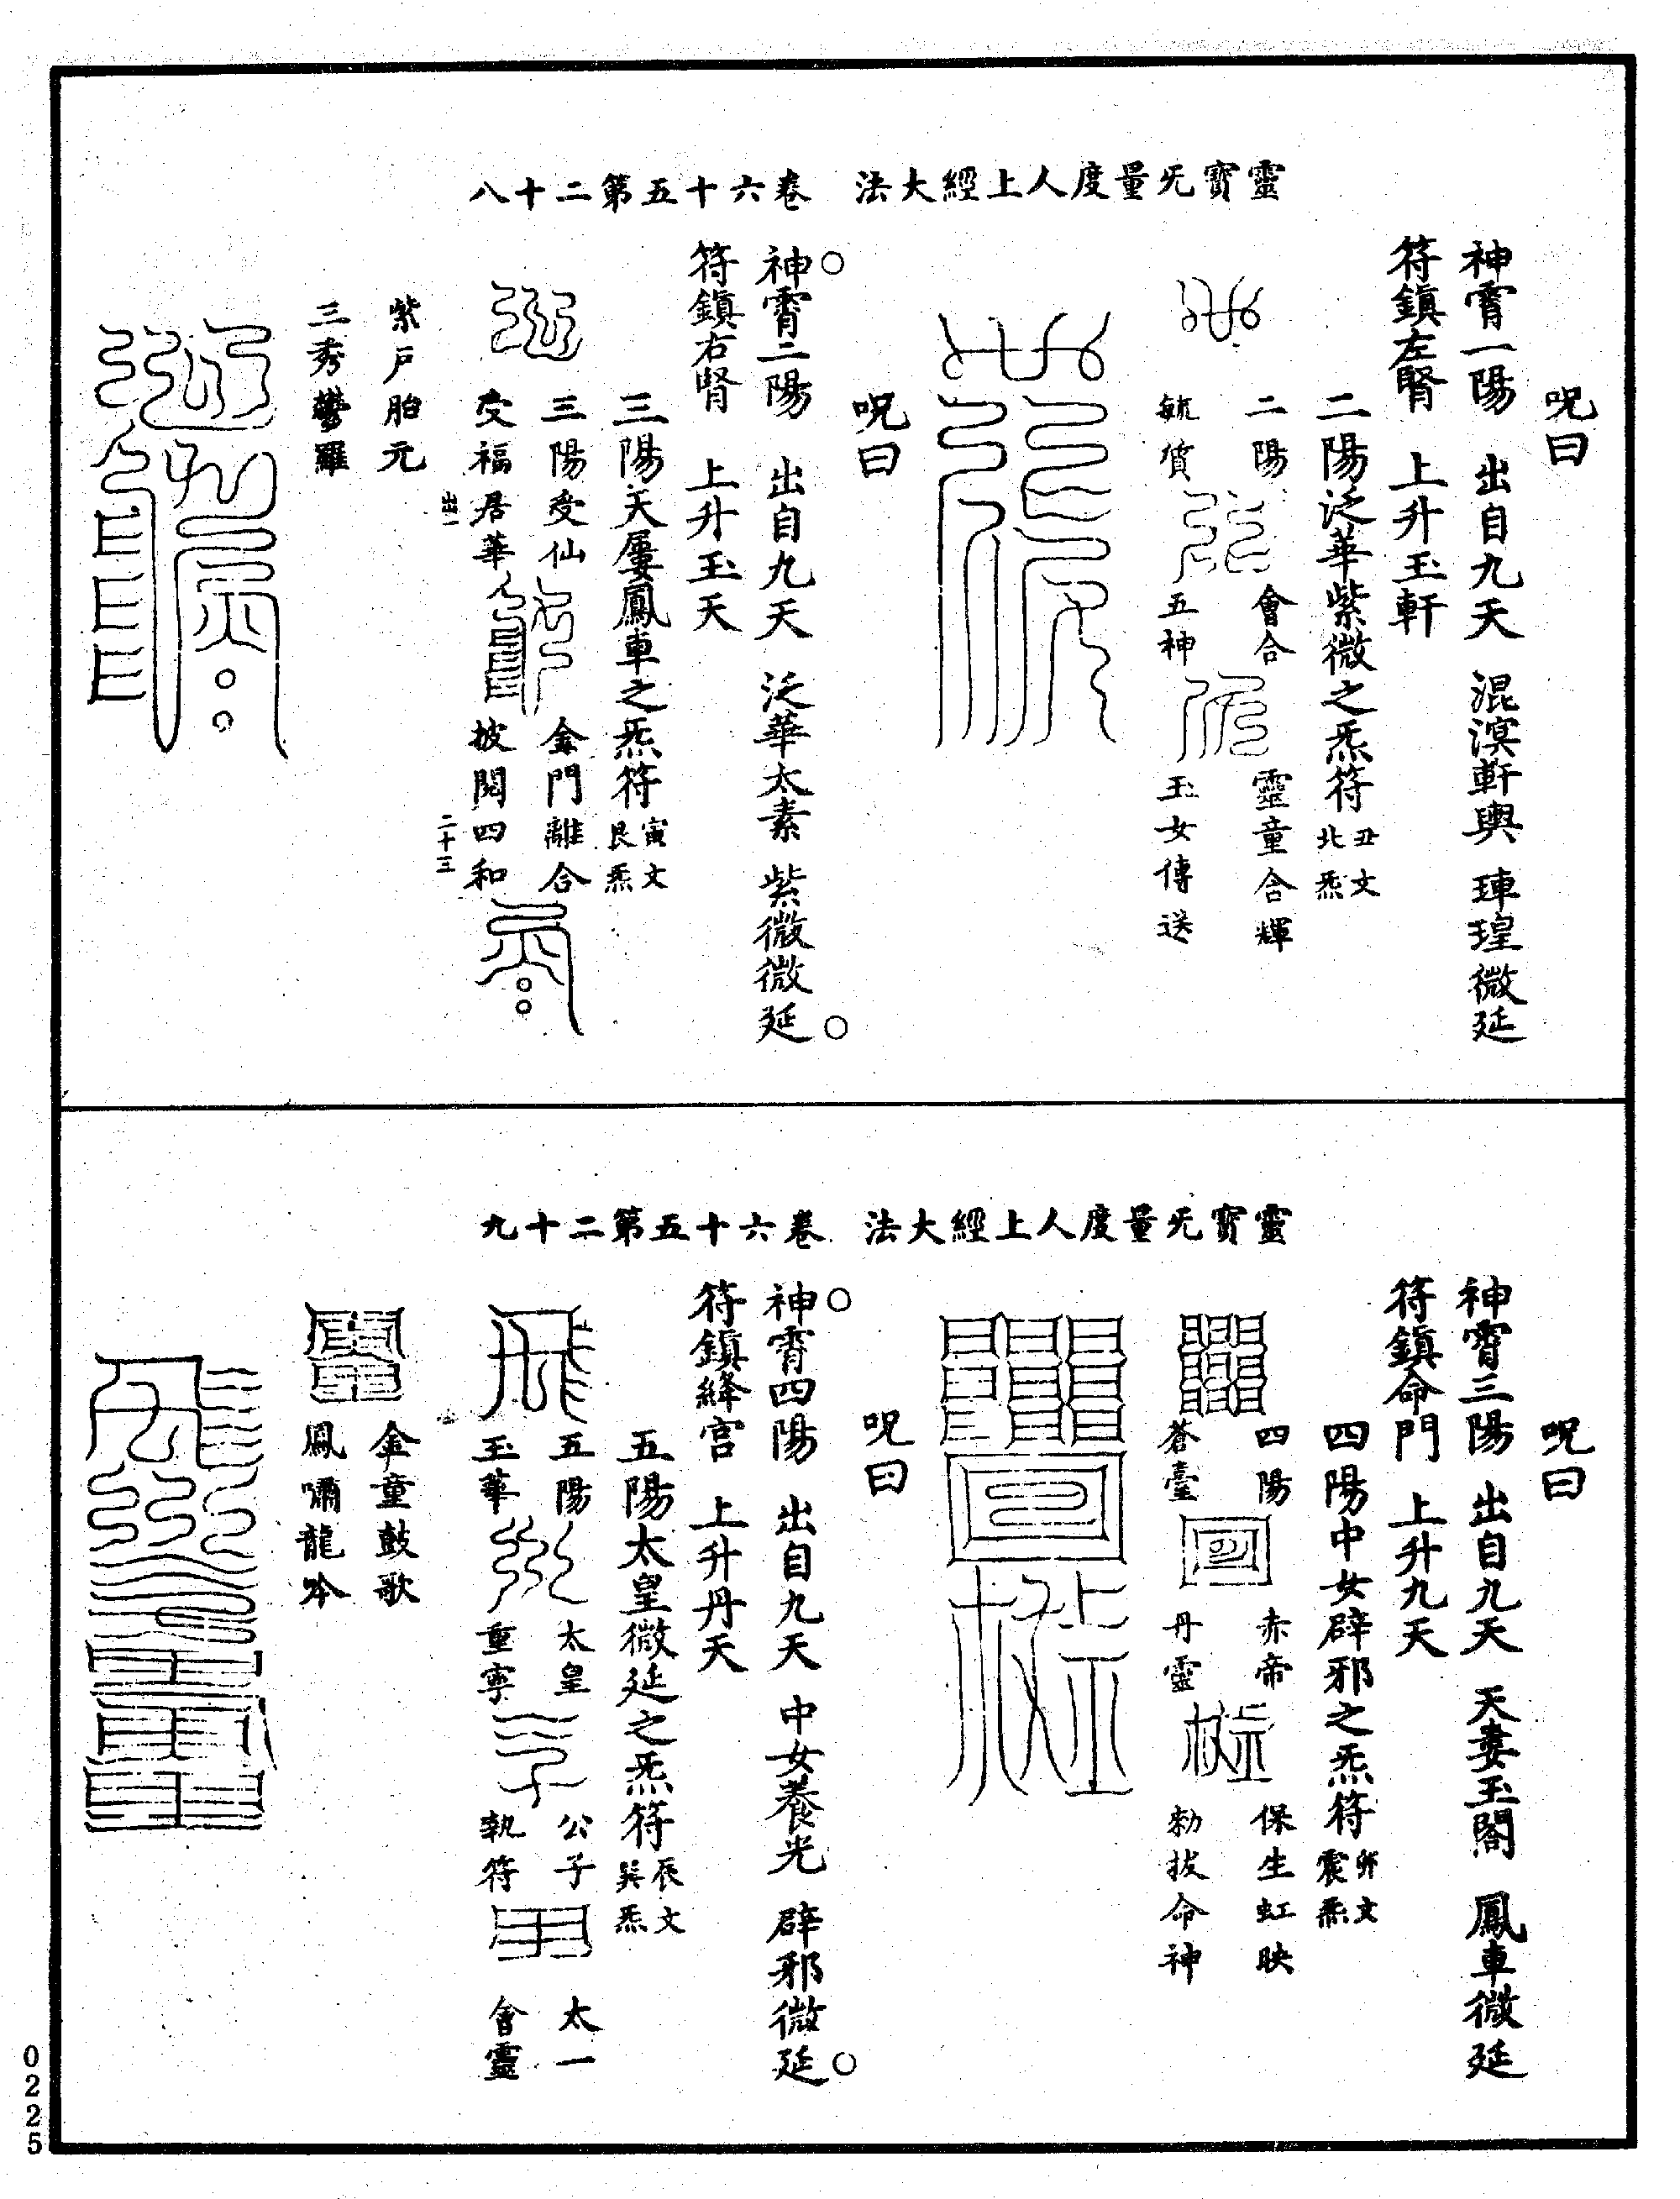 靈寶旡量度人上經大法　卷六十五第二十八
呪曰
神霄一陽　出自九天　混溟軒輿　琿瑝微延
符鎮左腎　上升玉軒
二陽泛華紫微之炁符丑文北炁
二陽　會合　靈童合輝
毓質　五神　玉女傳送
呪曰
神霄二陽　出自九天　泛華太素　紫微微延
符鎮右腎　上升玉天
三陽天屢鳳車之炁符寅文艮炁
三陽受仙　金門離合
受福居華　披閱四和
出一　二十三
紫戶胎元
三秀鬱羅
靈寶旡量度人上經大法　卷六十五第二十九
呪曰
神霄三陽　出自九天　天妻玉閣　鳳車微延
符鎮命門　上升九天
四陽中女辟邪之炁符卯文震炁
四陽　赤帝　保生虹映
蒼臺　丹靈　勑拔命神
呪曰
神霄四陽　出自九天　中女養光　辟邪微延
符鎮絳宮　上升丹天
五陽太皇微延之炁符辰文巽炁
五陽　太皇　公子　太一
玉華　重寧　執符　會靈
金童鼓歌
鳳嘯龍吟
0225